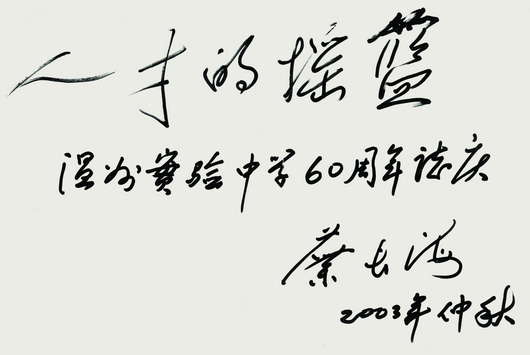 人才的摇蓝
温州實验中学60周年誌庆
蔡长海
2003年仲秋